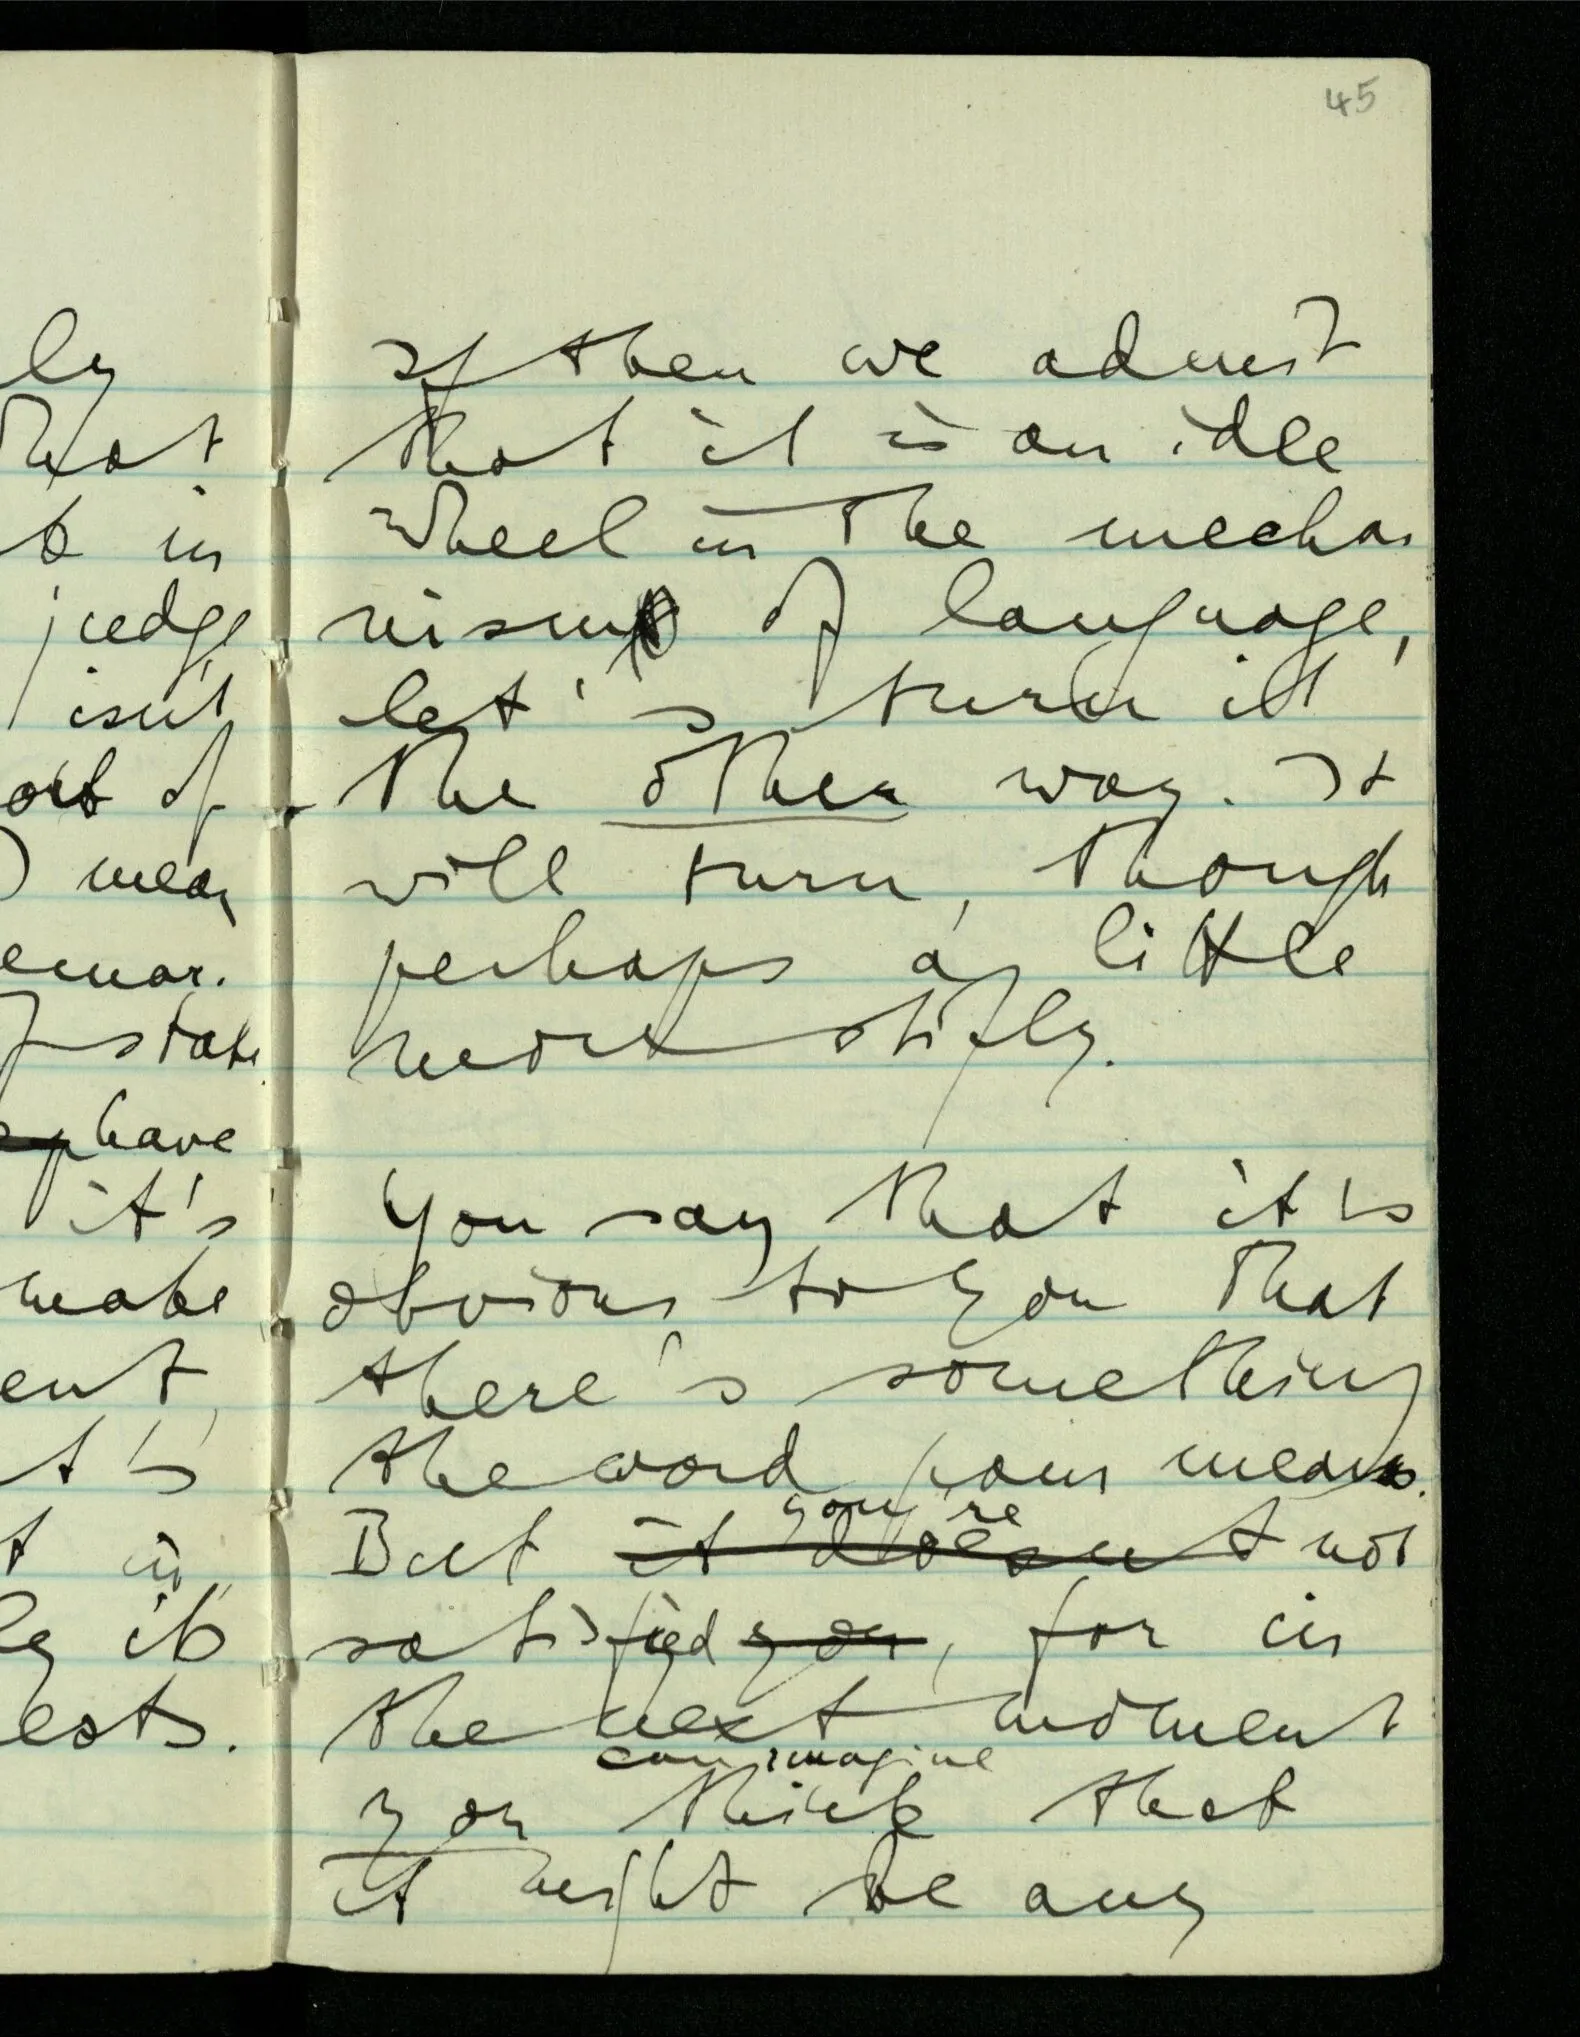 45
ly
that
k in
judge
isn't
ort of
) mean
emar.
f state
have
it's
make
ent,
t is
t in
ly it's
ests.
If then we admit
that it is an idle
wheel in the mecha
nism of language,
let's turn it
the other way. It
will turn, though
perhaps a little
more stifly.
You say that it is
obvious to you that
there's something
the word pain means.
you're
But it doesn't not
satisfied you, for in
the next moment
can imagine
you think that
it might be any